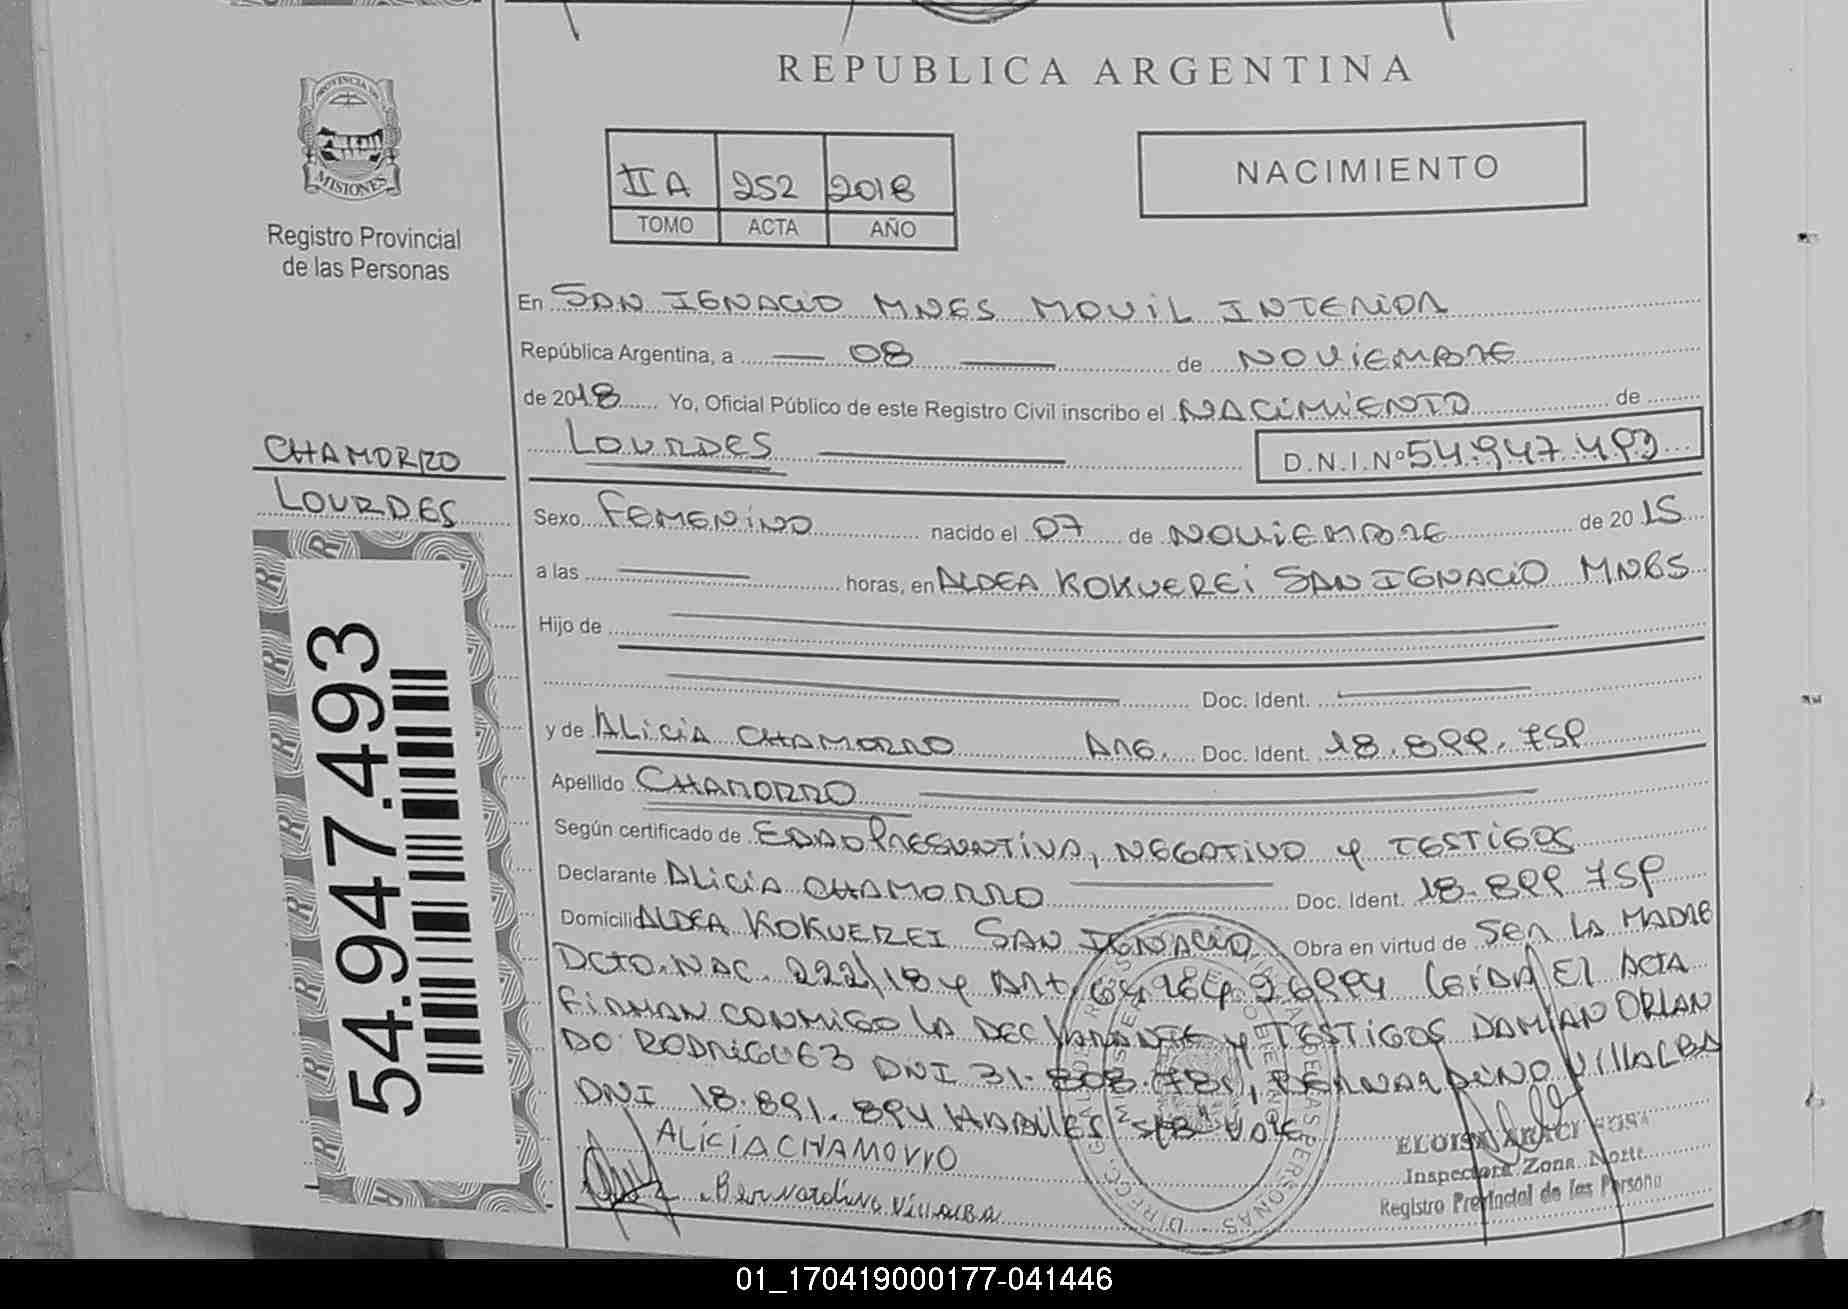 REPUBLICA ARGENTINA
PROVINCIA DE
MISIONES
Registro Provincial
de las Personas
II A 252 2018
TOMO ACTA AÑO
NACIMIENTO
En SAN IGNACIO MNES MOVIL INTERIOR
República Argentina, a — 08 — de NOVIEMBRE
de 2018 Yo, Oficial Público de este Registro Civil inscribo el NACIMIENTO de
LOURDES — D.N.I.Nº 54.947.493
CHAMORRO
LOURDES
54.947.493
Sexo FEMENINO nacido el 07 de NOVIEMBRE de 2015
a las — horas, en ALDEA KOKUEREI SAN IGNACIO MNES
Hijo de —
— Doc. Ident. —
y de ALICIA CHAMORRO ARG. Doc. Ident. 18.899.759
Apellido CHAMORRO —
Según certificado de EDAD PRESUNTIVA, NEGATIVO Y TESTIGOS
Declarante ALICIA CHAMORRO — Doc. Ident. 18.899.759
Domicilio ALDEA KOKUEREI SAN IGNACIO Obra en virtud de SER LA MADRE
DCTO. NAC. 222/18 Y Art. LEIDA EL ACTA
FIRMAN CONMIGO LA DECLARANTE Y TESTIGOS DAMIAN ORLAN
DO RODRIGUEZ DNI 31. BERNARDINO VILLALBA
DNI 18.891.894
ALICIA CHAMORRO
Bernardino Villalba
Inspectora Zona Norte
Registro Provincial de las Persona
01_170419000177-041446